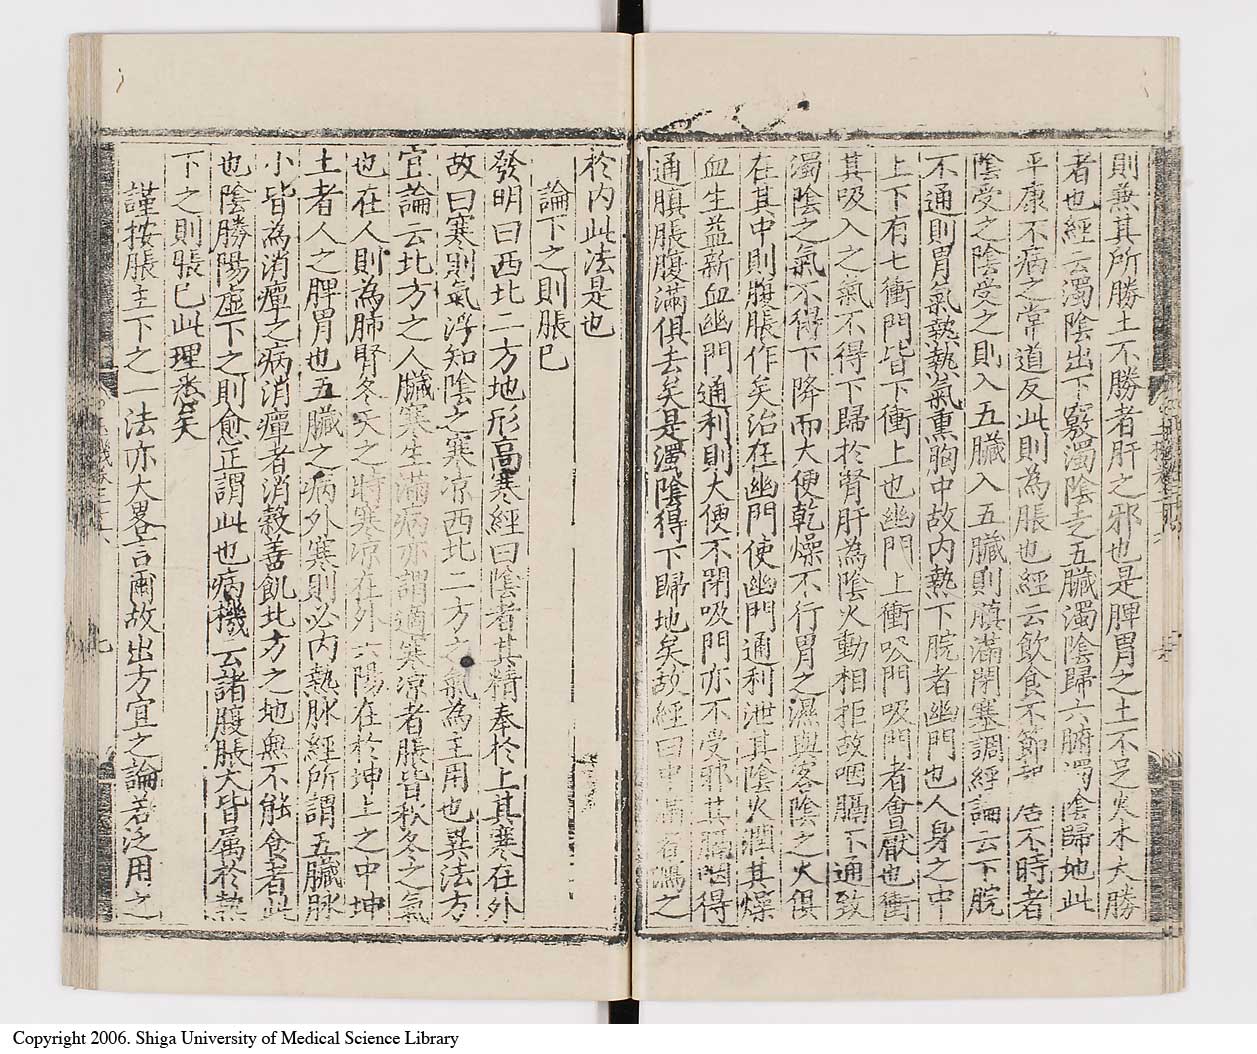 則兼其所勝土不勝者肝之邪也是脾胃之土不足寒木大勝
者也經云濁陰出下竅濁陰走五臟濁陰歸六腑濁陰歸地此
平康不病之常道反此則為脹也經云飲食不節起居不時者
陰受之陰受之則入五臟入五臟則䐜滿閉塞調經論云下脘
不通則胃氣熱熱氣熏胸中故内熱下脘者幽門也人身之中
上下有七衝門皆下衝上也幽門上衝吸門吸門者會厭也衝
其吸入之氣不得下歸於腎肝為陰火動相拒故咽膈不通致
濁陰之氣不得下降而大便乾燥不行胃之濕與客陰之火俱
在其中則腹脹作矣治在幽門使幽門通利泄其陰火潤其燥
血生益新血幽門通利則大便不閉吸門亦不受邪其膈咽得
通䐜脹腹滿俱去矣是濁陰得下歸地矣故經曰中滿者瀉之
於内此法是也
論下之則脹已
發明曰西北二方地形高寒經曰陰者其精奉於上其寒在外
故曰寒則氣浮知陰之寒凉西北二方之氣為主用也異法方
宜論云北方之人臟寒生滿病亦謂適寒凉者脹皆秋冬之氣
也在人則為肺腎冬天之時寒凉在外六陽在於坤上之中坤
土者人之脾胃也五臟之病外寒則必内熱脉經所謂五臟脉
小皆為消癉之病消癉者消穀善飢北方之地無不能食者此
也陰勝陽虛下之則愈正謂此也病機云諸腹脹大皆属於熱
下之則脹已此理悉矣
謹按脹主下之一法亦大畧言爾故出方宜之論若泛用之
Copyright 2006. Shiga University of Medical Science Library